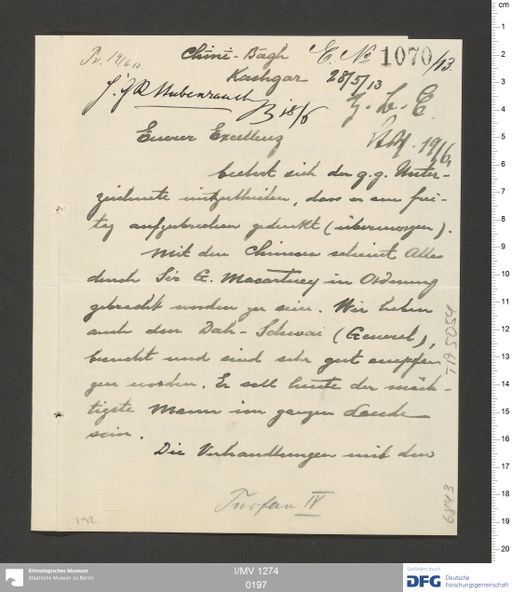 Pr. 19/6 13.
Chini-Bagh
E. No 1070/13.
Kashgar 28/5/13
18/6
z. L. E.
19/6
Euerer Excellenz
beehrt sich der g.g. Unter-
zeichnete mitzutheilen, dass er am frei-
tag aufzubrechen gedenkt (übermorgen).
Mit den Chinesen scheint Alles
durch Sir G. Macartney in Ordnung
gebracht worden zu sein. Wir haben
auch den Dah-Schwai (General),
besucht und sind sehr gut empfan-
gen worden. Er soll heute der mäch-
tigste Mann im ganzen Lande
sein.
Die Verhandlungen mit den
Turfan IV
192
TA 5054
6843
Ethnologisches Museum
Staatliche Museen zu Berlin
I/MV 1274
0197
Gefördert durch
DFG Deutsche
Forschungsgemeinschaft
cm
1
2
3
4
5
6
7
8
9
10
11
12
13
14
15
16
17
18
19
20